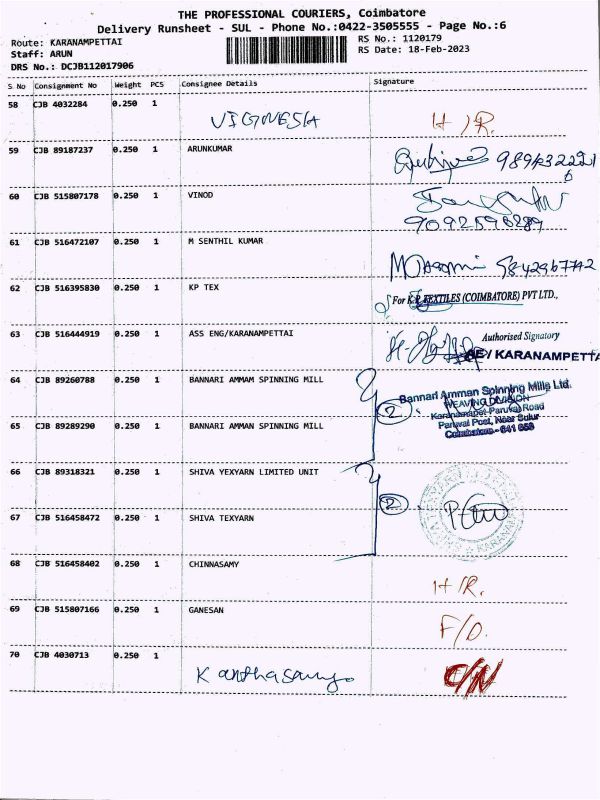 THE PROFESSIONAL COURIERS, Coimbatore
Delivery Runsheet - SUL - Phone No.:0422-3505555 - Page No.:6
Route: KARANAMPETTAI
RS No.: 1120179
Staff: ARUN
RS Date: 18-Feb-2023
DRS No.: DCJB112017906
S No Consignment No Weight PCS Consignee Details Signature
58 CJB 4032284 0.250 1 VIGNESH H/R.
59 CJB 89187237 0.250 1 ARUNKUMAR
60 CJB 515807178 0.250 1 VINOD
9092598289
61 CJB 516472107 0.250 1 M SENTHIL KUMAR 9842967742
62 CJB 516395830 0.250 1 KP TEX For K.P. TEXTILES (COIMBATORE) PVT LTD.,
63 CJB 516444919 0.250 1 ASS ENG/KARANAMPETTAI Authorised Signatory
AE/KARANAMPETTA
64 CJB 89260788 0.250 1 BANNARI AMMAM SPINNING MILL 2 Bannari Amman Spinning Mills Ltd.
WEAVING DIVISION
Karanampet-Paruvai Road
65 CJB 89289290 0.250 1 BANNARI AMMAM SPINNING MILL Paruvai Post, Near Sulur
Coimbatore - 641 658
66 CJB 89318321 0.250 1 SHIVA YEXYARN LIMITED UNIT
2
67 CJB 516458472 0.250 1 SHIVA TEXYARN
68 CJB 516458402 0.250 1 CHINNASAMY H/R.
69 CJB 515807166 0.250 1 GANESAN F/D.
70 CJB 4030713 0.250 1 Kanthasamy C/N